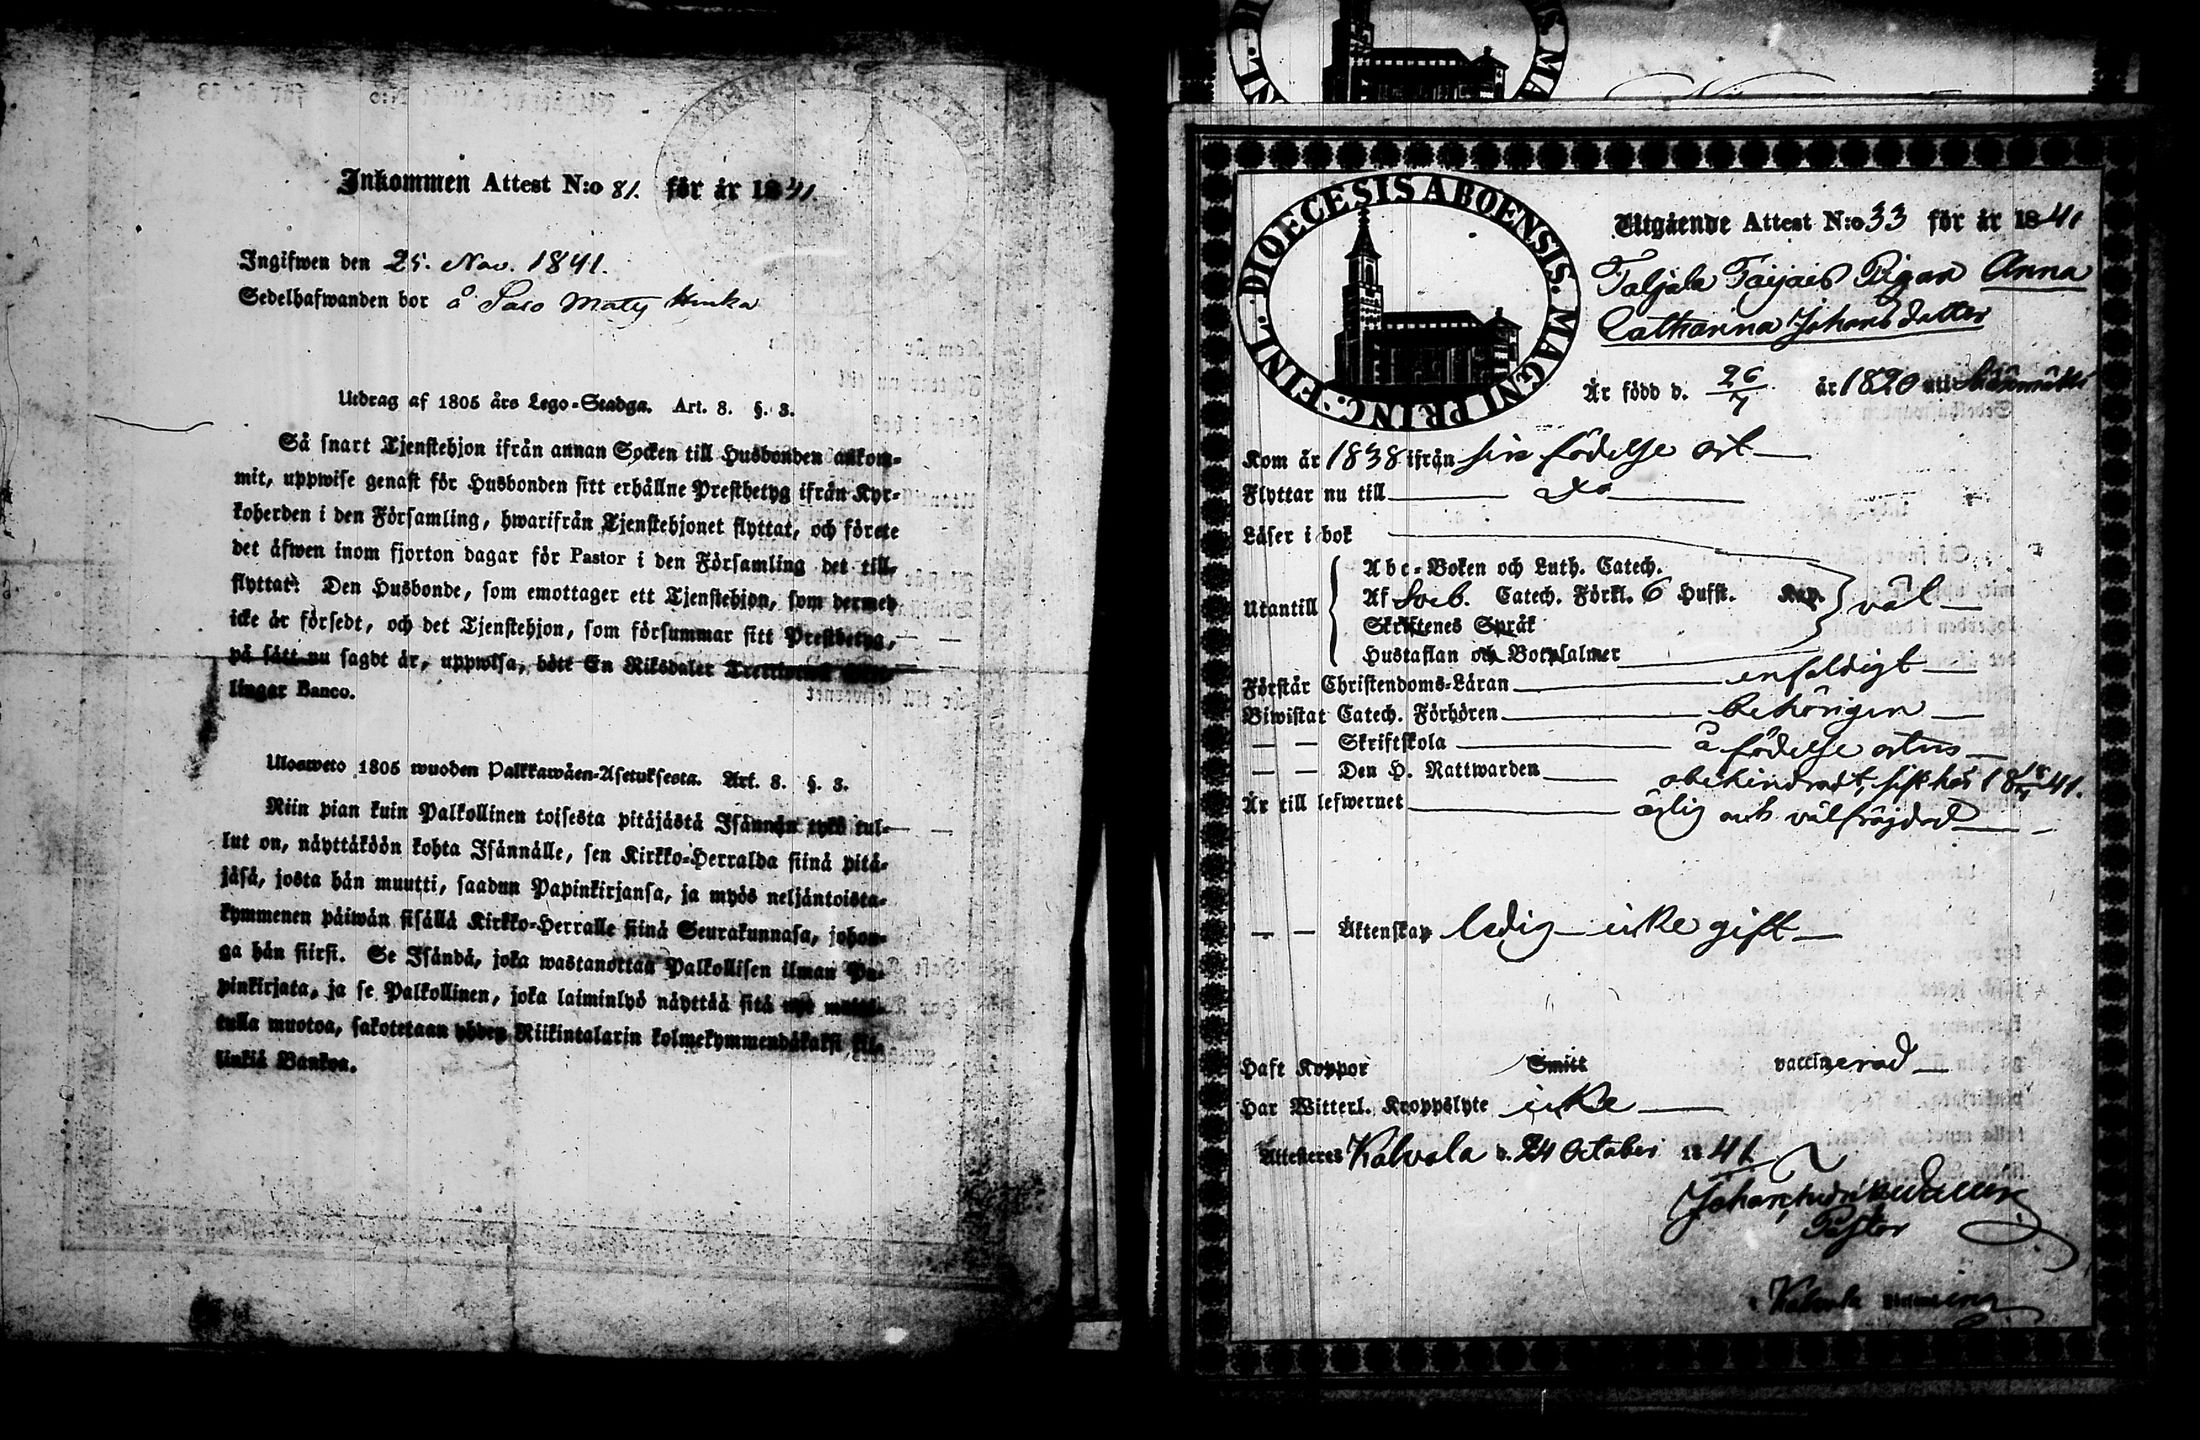 Inkommen Attest N:o 81. för år 1841.
Ingifwen den 25. Nov. 1841.
Sedelhafwanden bor å Saso Matts Hinka
Utdrag af 1805 års Lego-Stadga. Art. 8. §. 3.
Så snart Tjenstehjon ifrån annan Socken till Husbonden ankom-
mit, uppwise genast för Husbonden sitt erhållne Prestbetyg ifrån Kyr-
koherden i den Församling, hwarifrån Tjenstehjonet flyttat, och förete
det äfwen inom fjorton dagar för Pastor i den Församling det till-
flyttat. Den Husbonde, som emottager ett Tjenstehjon, som dermed
icke är försedt, och det Tjenstehjon, som försummar sitt Prestbetyg,
på sätt nu sagdt är, uppwisa, böte En Riksdaler Trettiotwå Skil-
lingar Banco.
Ulosweto 1805 wuoden Palkkawäen-Asetuksesta. Art. 8. §. 3.
Niin pian kuin Palkollinen toisesta pitäjästä Isännän tykö tul-
lut on, näyttäköön kohta Isännälle, sen Kirkko-Herralda siinä pitä-
jäsä, josta hän muutti, saadun Papinkirjansa, ja myös neljäntoista-
kymmenen päiwän sisällä Kirkko-Herralle siinä Seurakunnasa, johon-
ga hän siirsi. Se Isändä, joka wastanottaa Palkollisen ilman Pa-
pinkirjata, ja se Palkollinen, joka laiminlyö näyttää sitä nyt
tulla muotoa, sakotetaan yhden Riikintalarin kolmekymmendäkaksi kil-
linkiä Bankoa.
DIOECESIS ABOENSIS. MAGNI PRINC. FINL.
Utgående Attest N:o 33 för år 1841
Taljala Taijais Pigan Anna
Catharina Johansdotter
Är född d. 26/7 år 1820 uti
Kom år 1838 ifrån sin födelse ort
Flyttar nu till Do
Läser i bok
Abc-Boken och Luth. Catech.
Utantill Af Sveb. Catech. Förkl. 6 Hufst. Kap. väl
Skriftenes Språk
Hustaflan och Botpsalmer
Förstår Christendoms-Läran enfaldigt
Biwistat Catech. Förhören behörigen
— — Skriftskola å födelse orten
— — Den H. Nattwarden obehindradt, sist här 18 18/7 41.
Är till lefwernet ärlig och välfräjdad
— — Äktenskap ledig icke gift
Haft Koppor Smitt vaccinerad
Har Witterl. Kroppslyte icke
Attesteras Kalvola d. 24 October 1841.
Johan
Pastor
Kalvola